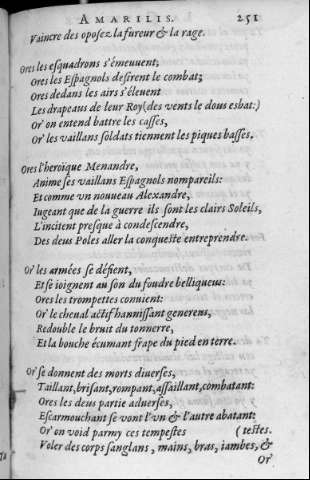 AMARILIS. 251
Vaincre des oposez la fureur & la rage.
Ores les esquadrons s'émeuuent;
Ores les Espagnols desirent le combat;
Ores dedans les airs s'éleuent
Les drapeaus de leur Roy (des vents le dous esbat:)
Or' on entend battre les casses,
Or' les vaillans soldats tiennent les piques basses.
Ores l'heroique Menandre,
Anime ses vaillans Espagnols nompareils:
Et comme vn nouueau Alexandre,
Iugeant que de la guerre ils sont les clairs Soleils,
L'incitent presque à condescendre,
Des deus Poles aller la conqueste entreprendre.
Or' les armées se défient,
Et se ioignent au son du foudre belliqueus:
Ores les trompettes conuient:
Or' le cheual actif hannissant genereus,
Redouble le bruit du tonnerre,
Et la bouche écumant frape du pied en terre.
Or' se donnent des morts diuerses,
Taillant, brisant, rompant, assaillant, combatant:
Ores les deus partie aduerses,
Escarmouchant se vont l'vn & l'autre abatant:
Or' on void parmy ces tempestes (testes.
Voler des corps sanglans, mains, bras, iambes, &
Or'